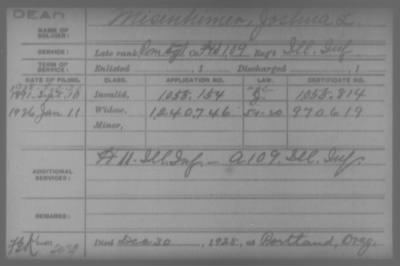 DEAD
NAME OF SOLDIER: Misenhimer, Joshua L.
SERVICE: Late rank, Com Sgt Co. H 109 Reg't Ill. Inf.
TERM OF SERVICE: Enlisted , 1 Discharged , 1
DATE OF FILING. CLASS. APPLICATION NO. LAW. CERTIFICATE NO.
1891 Sept 10 Invalid, 1053.154 1053.814
1926 Jan 11 Widow, 1240746 970619
Minor,
ADDITIONAL SERVICES: H 11. Ill. Inf. – A 109, Ill. Inf.
REMARKS:
Died Dec 30, 1925, at Portland, Oreg.